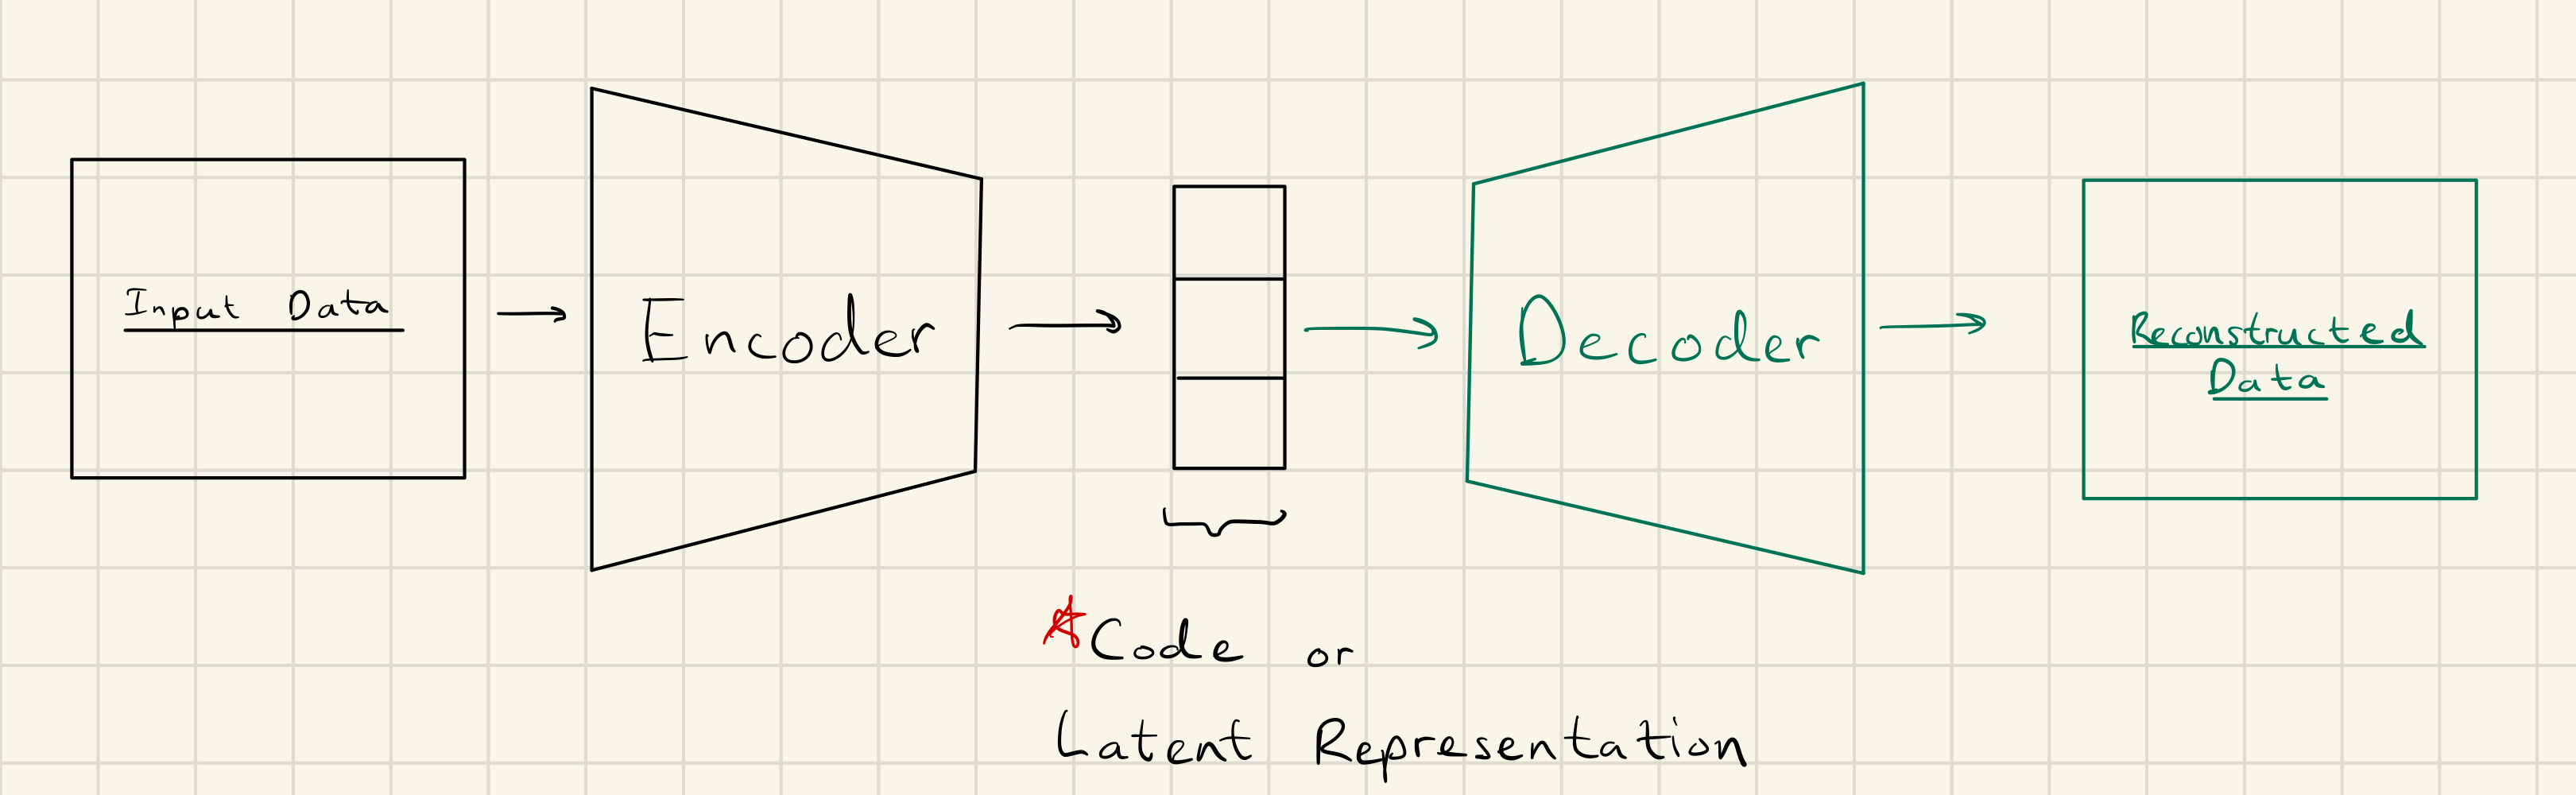 Input Data
Encoder
Decoder
Reconstructed
Data
Code or
Latent Representation